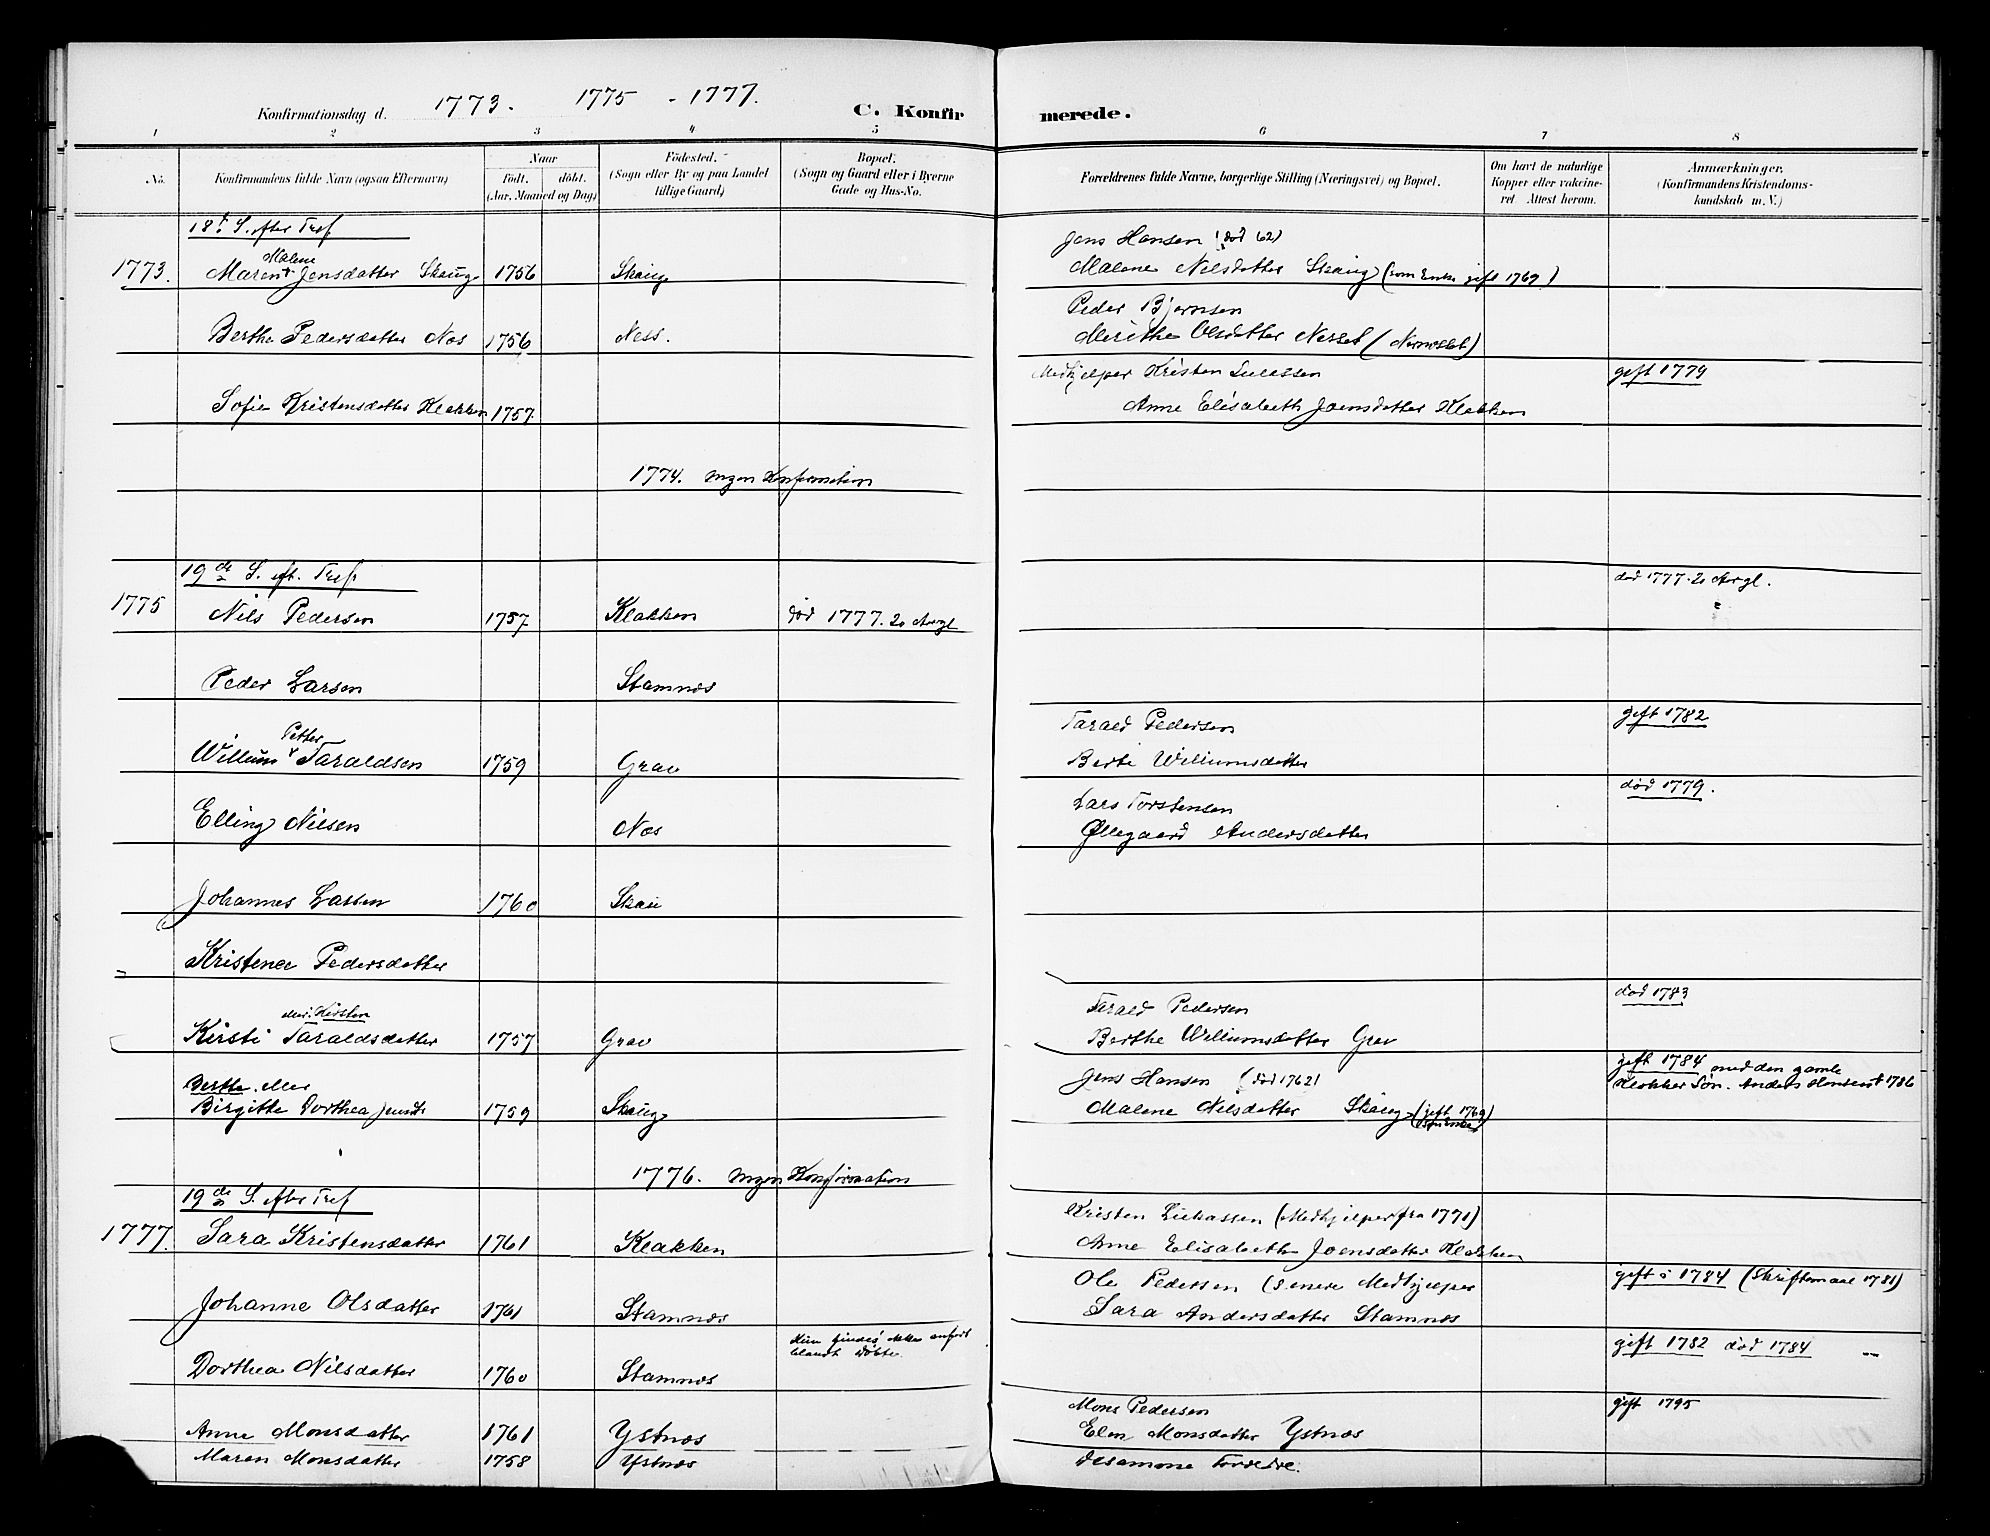 Konfirmationsdag d. 1773. 1775 - 1777. C. Konfirmerede.
1 2 3 4 5 6 7 8
No. Konfirmandens fulde Navn (ogsaa Efternavn) Naar Födt. döbt. (Aar, Maaned og Dag) Födested. (Sogn eller By og paa Landet tillige Gaard) Bopæl. (Sogn og Gaard eller i Byerne Gade og Hus-No. Forældrenes fulde Navne, borgerlige Stilling (Næringsvei) og Bopæl. Om havt de naturlige Kopper eller vakcineret Attest herom. Anmærkninger, (Konfirmandens Kristendomskundskab m. V.)
18 S. efter Tref
Jens Hansen (död 62)
Malene
1773. Maren Jensdatter Skaug 1756 Skaug Malene Nilsdatter Skaug (som Enke gift 1769)
Peder Bjørnsen
Berthe Pedersdatter Nos 1756 Ness. Merithe Olsdatter Nesset
Medhjelper Kristen Lucassen gift 1779
Sofie Kristensdatter Klakken 1757 Anne Elisabeth Joensdatter Klakken
1774. ingen Konfirmation
19de S. eft. Tref. död 1777. 20 Aargl.
1775 Nils Pedersen 1757 Klakken död 1777. 20 Aargl
Peder Larsen Stamnos
Petter Tarald Pedersen gift 1782
Willum Taraldsen 1759 Grav Berte Williumsdatter
Lars Torstensen död 1779.
Elling Nilsen Nos Øllegaard Andersdatter
Johannes Lassen 1760 Skau
Kristence Pedersdatter
eller Kirsten Tarald Pedersen död 1783
Kirsti Taraldsdatter 1757 Grav Berthe Williumsdatter Grav
Berthe eller Jens Hansen (död 1762) gift 1784 med den gamle
Klokker Søn. Anders Hansen † 1786
Birgitte Dorthea Jensdt 1759 Skaug Malene Nilsdatter Skaug (gift 1769)
1776. ingen Konfirmation
19de S. efter Tref
Kristen Lukassen (Medhjelper fra 1771)
1777. Sara Kristensdatter 1761 Klakken Anne Elisabeth Joensdatter Klakken
Ole Pedersen (senere Medhjelper gift i 1784 (Skriftemaal 1781)
Johanne Olsdatter 1761 Stamnos Sara Andersdatter Stamnos
Hun findes ikke anført
blandt døbte gift 1782 död 1784
Dorthea Nilsdatter 1760 Stamnos
Mons Pedersen gift 1795
Anne Monsdatter 1761 Ystnos Elen Monsdatter Ystnos
Maren Monsdatter 1758 Ystnos Desamme